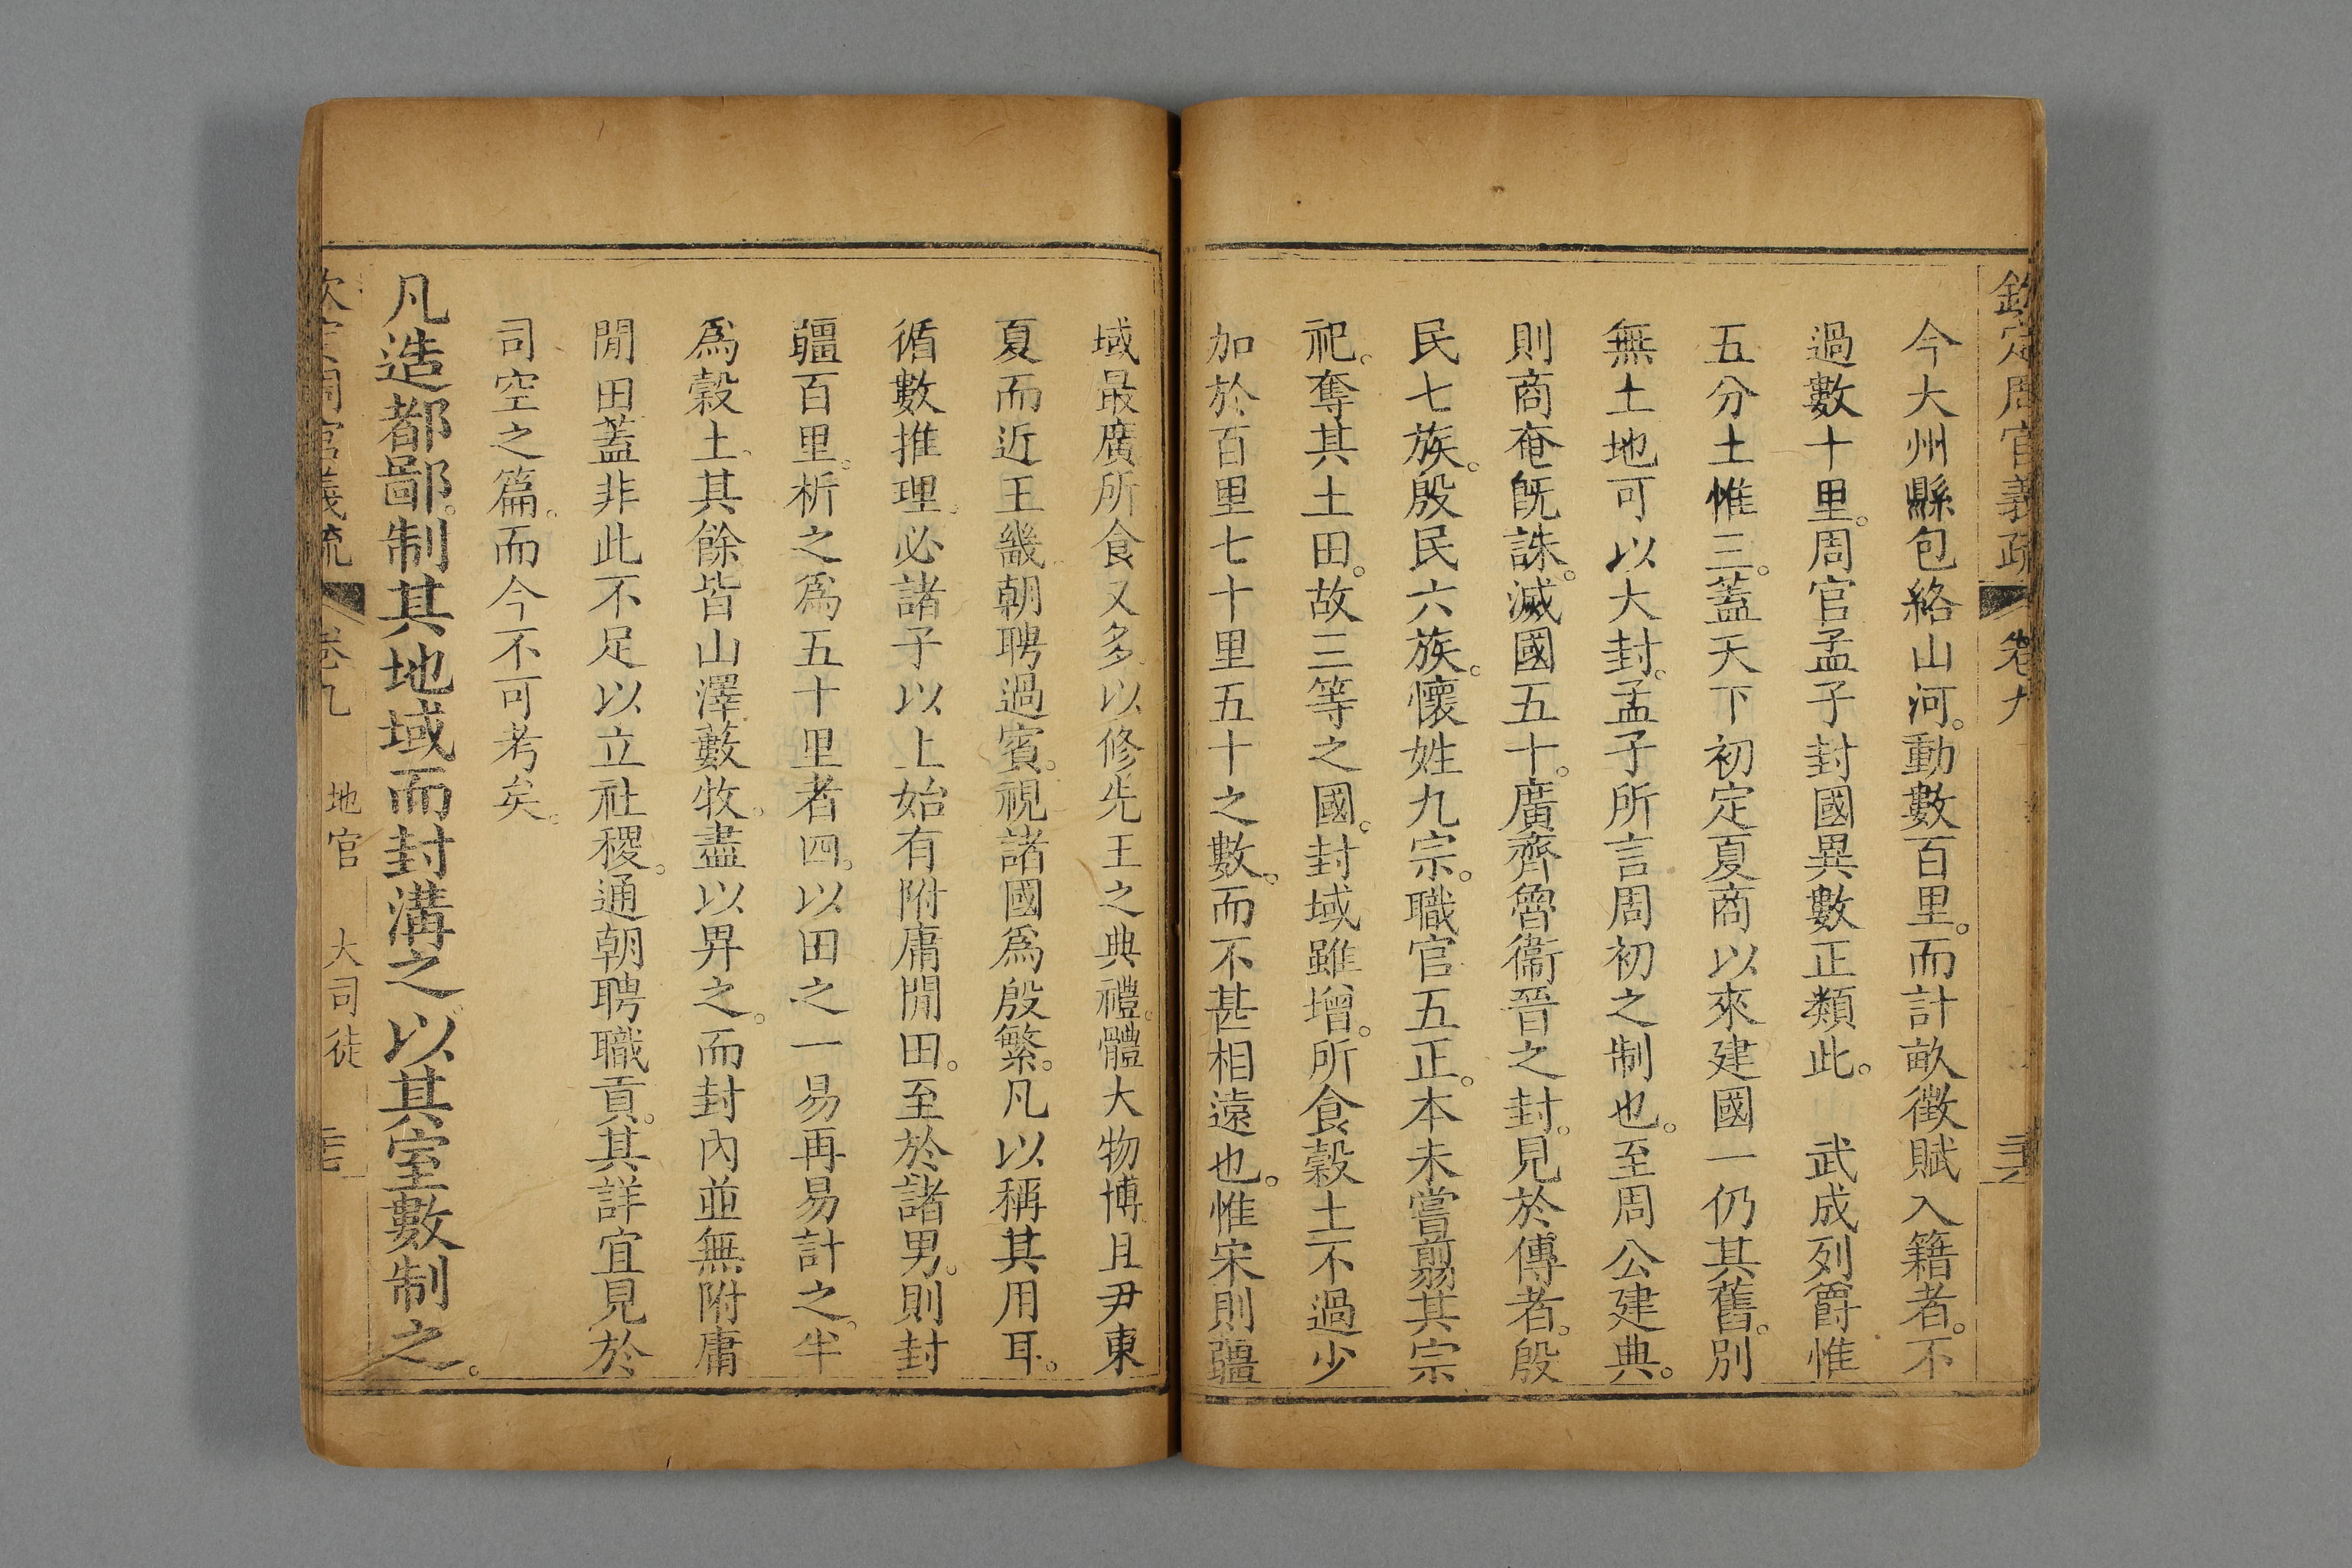 欽定周官義疏 卷九
今大州縣包絡山河。動數百里。而計畝徵賦入籍者。不
過數十里。周官孟子封國異數正類此。 武成列爵惟
五分土惟三。蓋天下初定夏商以來建國一仍其舊。別
無土地可以大封。孟子所言周初之制也。至周公建典。
則商奄旣誅。滅國五十。廣齊魯衞晉之封。見於傳者。殷
民七族。殷民六族。懷姓九宗。職官五正。本未嘗翦其宗
祀。奪其土田。故三等之國。封域雖增。所食穀土不過少
加於百里七十里五十之數。而不甚相遠也。惟宋則疆
域最廣所食又多以修先王之典禮。體大物博且尹東
夏而近王畿朝聘過賓。視諸國爲殷繁。凡以稱其用耳。
循數推理。必諸子以上始有附庸閒田。至於諸男。則封
疆百里。析之爲五十里者四。以田之一易再易計之。半
爲穀土。其餘皆山澤藪牧。盡以畀之。而封內並無附庸
閒田蓋非此不足以立社稷。通朝聘職貢。其詳宜見於
司空之篇。而今不可考矣。
凡造都鄙。制其地域而封溝之。以其室數制之。
欽定周官義疏 卷九 地官 大司徒